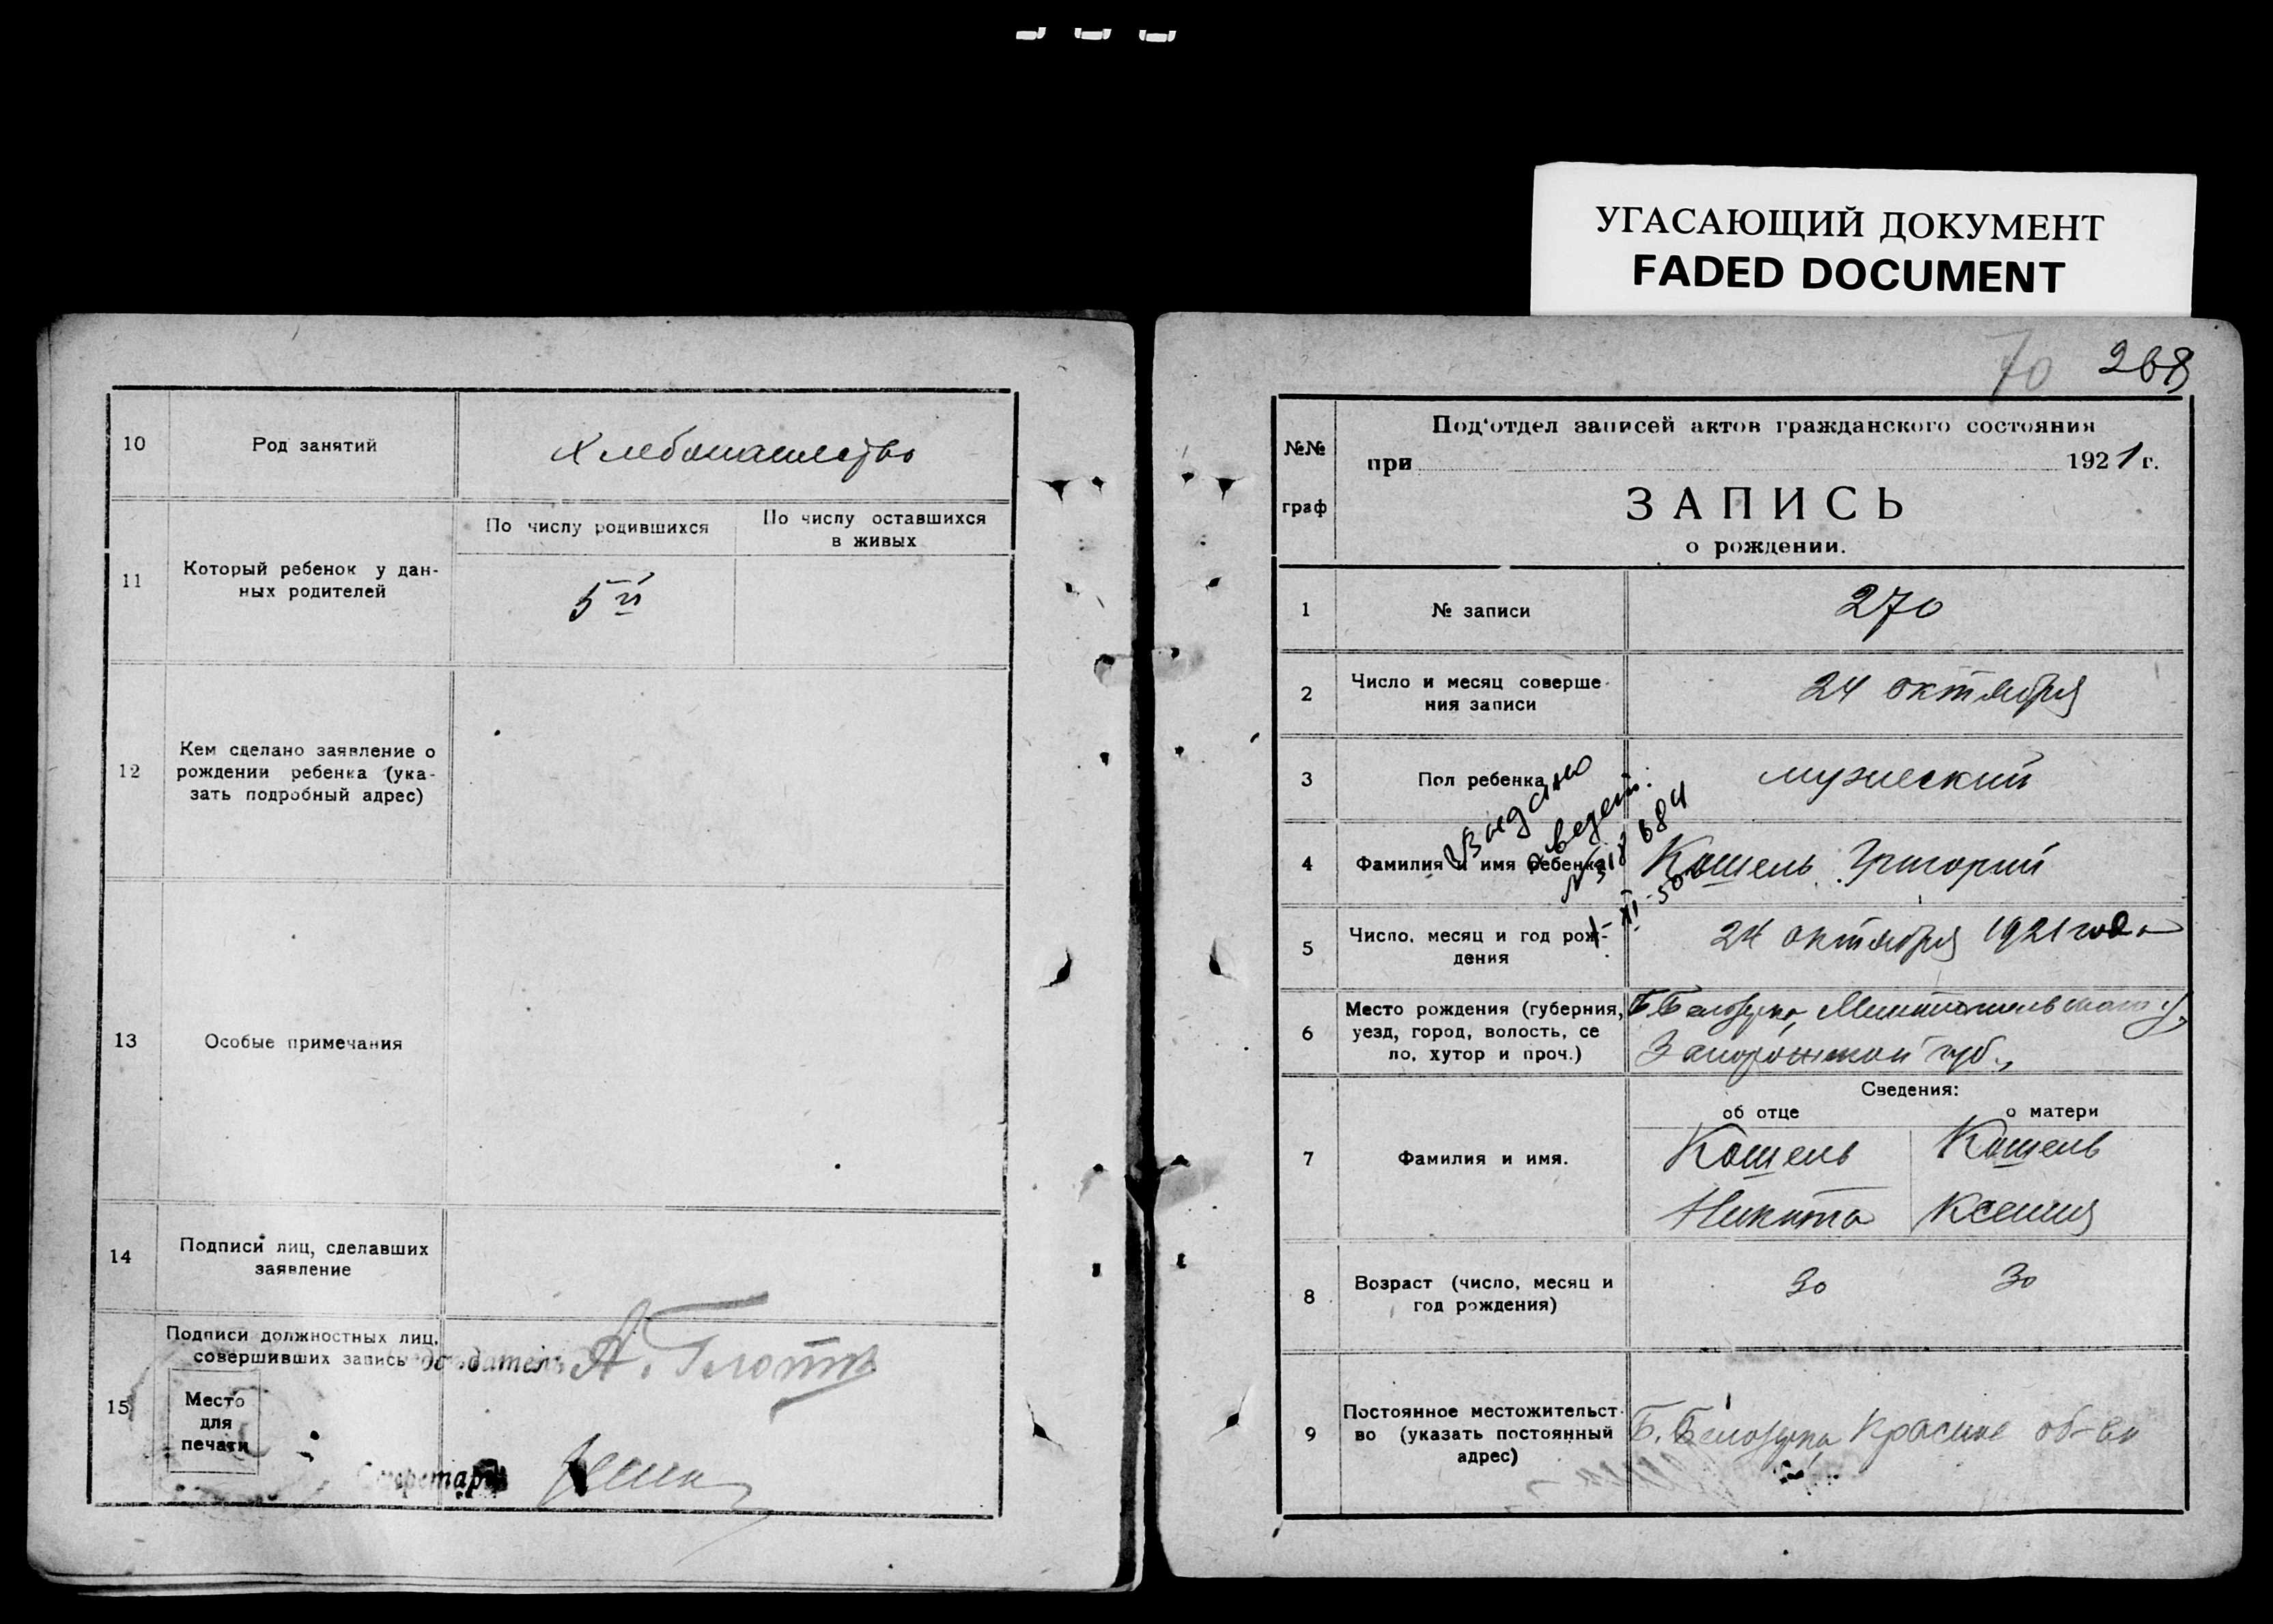 УГАСАЮЩИЙ ДОКУМЕНТ
FADED DOCUMENT
10 Род занятий Хлебопашество
11 Который ребенок у дан-
ных родителей
По числу родившихся
По числу оставшихся
в живых
5й
12 Кем сделано заявление о
рождении ребенка (ука-
зать подробный адрес)
13 Особые примечания
14 Подписи лиц, сделавших
заявление
15 Подписи должностных лиц,
совершивших запись
А.
Место
для
печати
Секретарь
70 268
№№
граф
Под'отдел записей актов гражданского состояния
при 1921 г.
ЗАПИСЬ
о рождении.
1 № записи 270
2 Число и месяц соверше-
ния записи
24 октября
3 Пол ребенка мужеский
Выдано
свидет.
1-XI-50
4 Фамилия и имя ребенка Кошель Григорий
5 Число, месяц и год рож-
дения
24 октября 1921 года
6 Место рождения (губерния,
уезд, город, волость, се
ло, хутор и проч.)
Б Белозерка, Мелитопольского у,
Запорожской губ.,
7 Фамилия и имя.
Сведения:
об отце о матери
Кошель Кошель
Никита Ксения
8 Возраст (число, месяц и
год рождения)
30 30
9 Постоянное местожительст-
во (указать постоянный
адрес)
Б. Белозерка